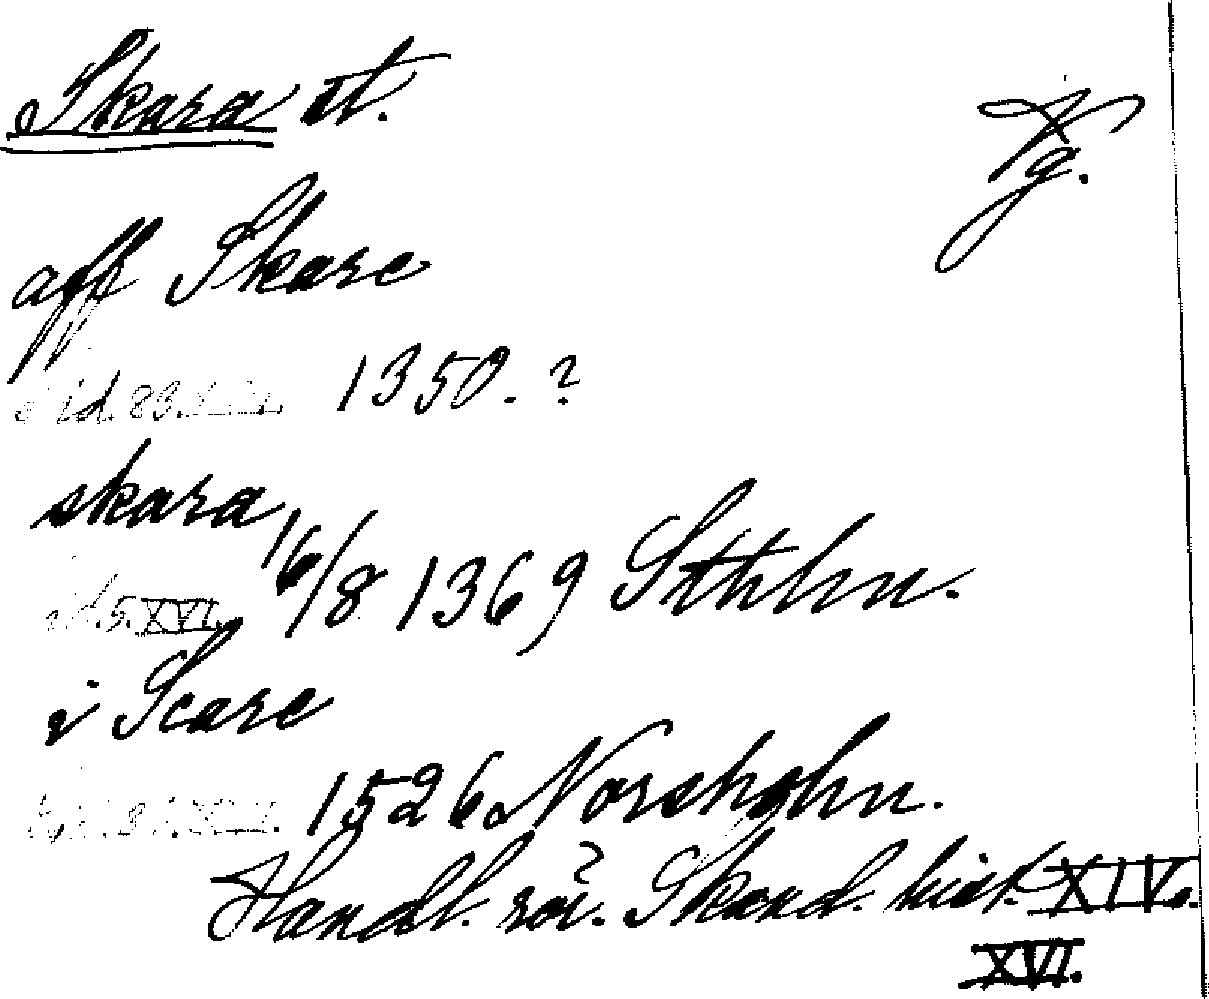 Skara st.
Vg.
aff Skare
sid. 83. 1350. ?
skara
16/8 1369 Sthlm.
i Scare
1526 Norsholm.
Handl. rör. Skand. hist. XIV.
XVI.